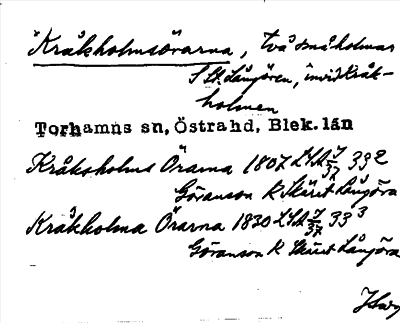 Kråkholmsörarna, två småholmar
S St. Långören, invid Kråk-
holmen
Torhamns sn, Östra hd, Blek. län
Kråksholms Örarna 1807 LSA 7/37 33 2
Göranson K Skärit Långöra
Kråkholma Örarna 1830 LSA 7/37 33 3
Göranson K Skärit Långöra